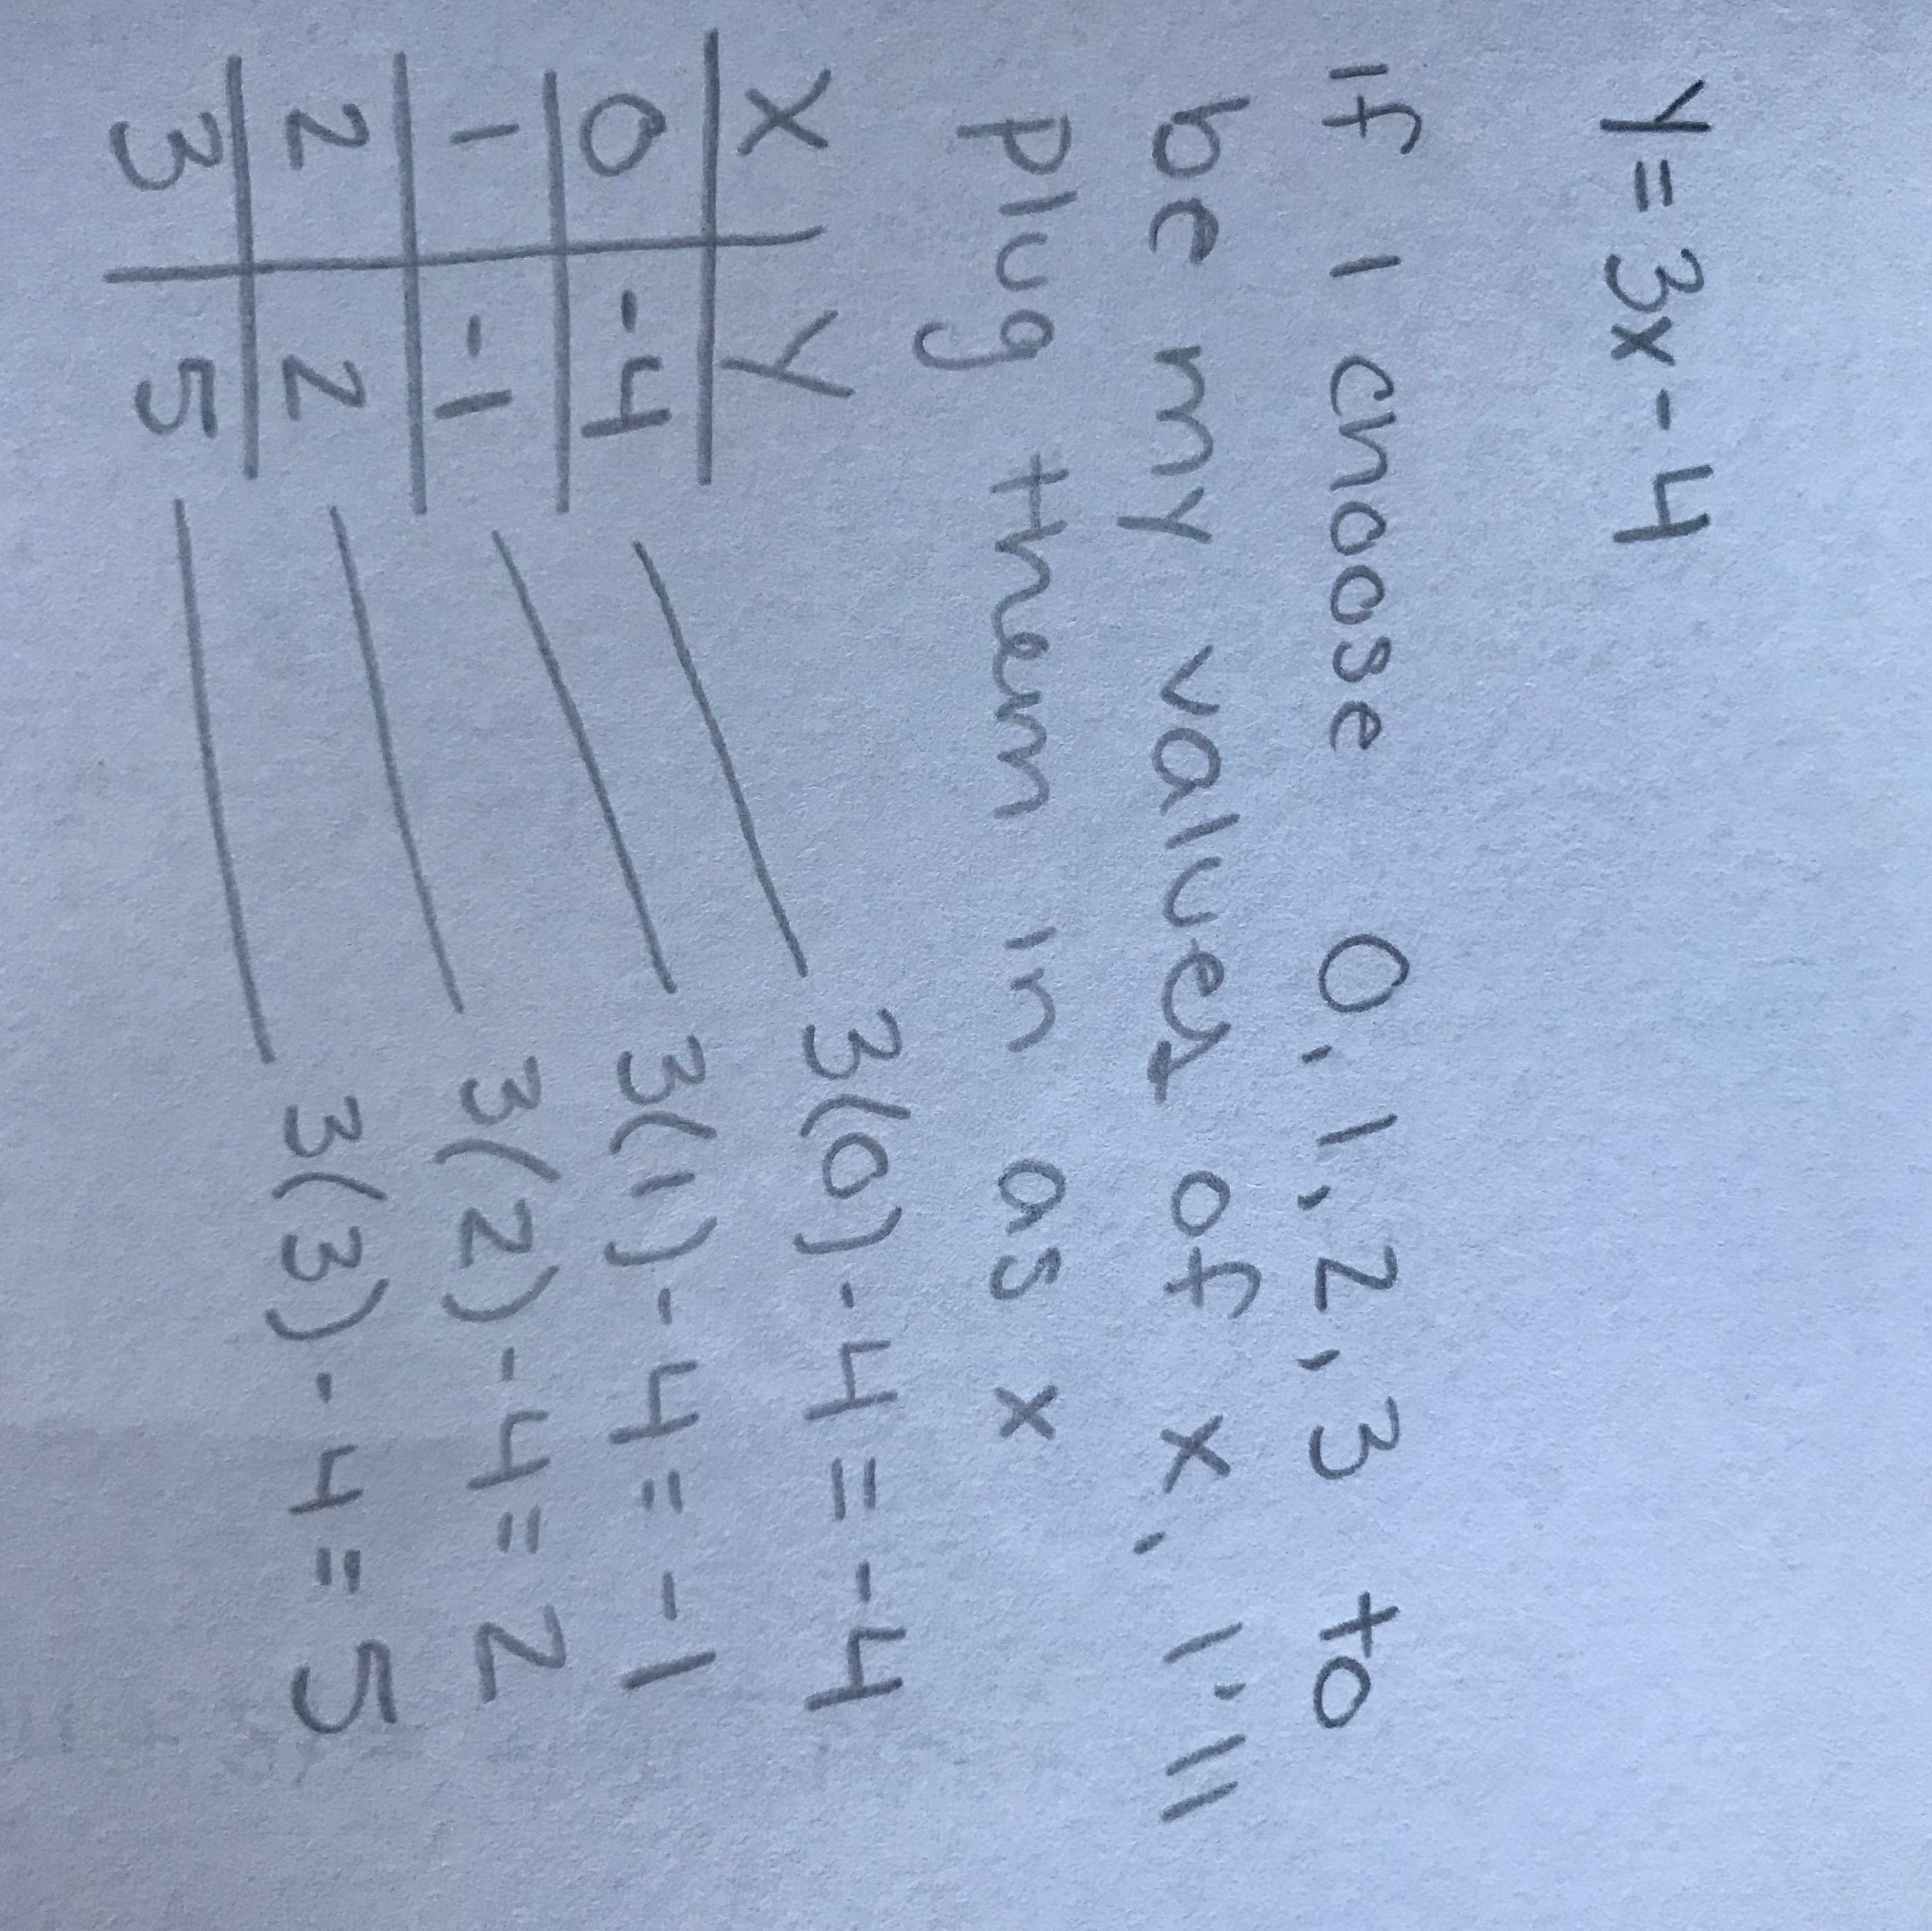 y = 3x - 4
If I choose 0, 1, 2, 3 to
be my values of x, I'll
plug them in as x
X Y
0 -4 3(0) - 4 = -4
1 -1 3(1) - 4 = -1
2 2 3(2) - 4 = 2
3 5 3(3) - 4 = 5